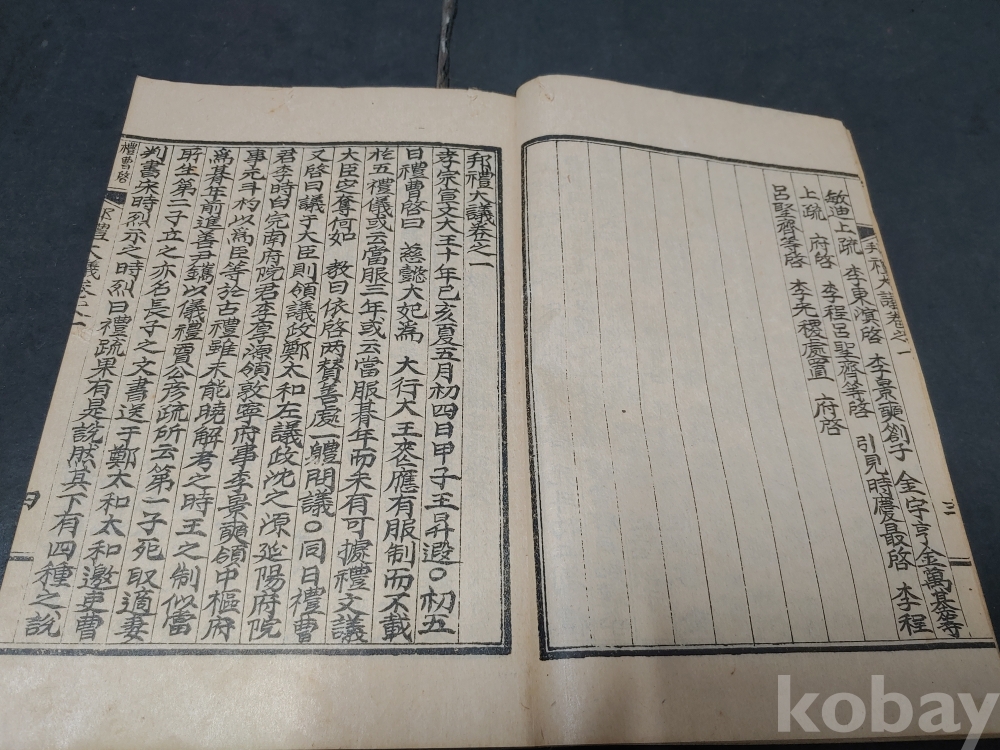 敏迪上疏 李東溟啓 李景奭劄子 金宇亨金萬基等
上疏 府啓 李程呂聖齊等啓 引見時 最啓 李程
呂聖齊等啓 李光稷處置 府啓
邦禮大議卷之一
三
邦禮大議卷之一
孝宗宣文大王十年己亥夏五月初四日甲子王昇遐○初五
日禮曹啓曰 慈懿大妃爲 大行大王喪應有服制而不載
於五禮儀或云當服三年或云當服朞年而未有可據禮文議
大臣定奪何如 敎曰依啓兩贊善處一體問議○同日禮曹
又啓曰議于大臣則領議政鄭太和左議政沈之源延陽府院
君李時白完南府院君李厚源領敦寧府事李景奭領中樞府
事元斗杓以爲臣等於古禮雖未能曉解考之時王之制似當
爲朞年前進善尹鑴以儀禮賈公彦疏所云第一子死取適妻
所生第二子立之亦名長子之文書送于鄭太和太和邀吏曹
判書宋時烈示之時烈曰禮疏果有是說然其下有四種之說
禮曹啓
邦禮大議卷之一
四
kobay